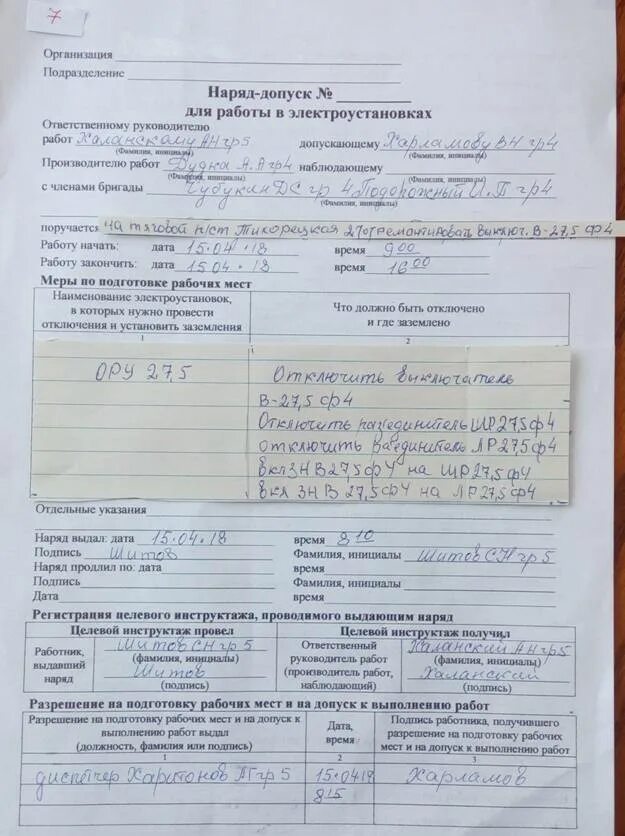 7
Организация
Подразделение
Наряд-допуск №
для работы в электроустановках
Ответственному руководителю
работ Халанскому АН гр5 допускающему Харламову ВН гр4
(Фамилия, инициалы) (Фамилия, инициалы)
Производителю работ Дудка А.А гр4 наблюдающему
(Фамилия, инициалы) (Фамилия, инициалы)
с членами бригады Чубукин ДС гр 4 Подорожный И.П гр4
(Фамилия, инициалы)
поручается на тяговой п/ст Тихорецкая отремонтировать выключ. В-27,5 ф4
Работу начать: дата 15.04.18 время 9 00
Работу закончить: дата 15 04.18 время 16 00
Меры по подготовке рабочих мест
Наименование электроустановок, в которых нужно провести отключения и установить заземления
Что должно быть отключено и где заземлено
1 2
1
ОРУ 27,5 Отключить выключатель
В-27,5 ф4
Отключить разъединитель ШР27,5ф4
отключить разъединитель ЛР27,5ф4
вкл ЗН В27,5ф4 на ШР27,5ф4
вкл ЗН В 27,5ф4 на ЛР27,5ф4
Отдельные указания
Наряд выдал: дата 15.04.18 время 8 10
Подпись Шитов Фамилия, инициалы Шитов СН гр 5
Наряд продлил по: дата время
Подпись Фамилия, инициалы
Дата время
Регистрация целевого инструктажа, проводимого выдающим наряд
Целевой инструктаж провел Целевой инструктаж получил
Работник, выдавший наряд
Шитов СН гр 5
(фамилия, инициалы)
Шитов
(подпись)
Ответственный руководитель работ (производитель работ, наблюдающий)
Халанский АН гр5
(фамилия, инициалы)
Халанский
(подпись)
Разрешение на подготовку рабочих мест и на допуск к выполнению работ
Разрешение на подготовку рабочих мест и на допуск к выполнению работ выдал (должность, фамилия или подпись)
Дата, время
Подпись работника, получившего разрешение на подготовку рабочих мест и на допуск к выполнению работ
1 2 3
диспетчер Харитонов АГ гр 5 15.0418 Харламов
8 15